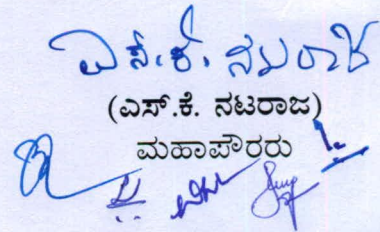 ಎಸ್.ಕೆ. ನಟರಾಜ
(ಎಸ್.ಕೆ. ನಟರಾಜ)
ಮಹಾಪೌರರು